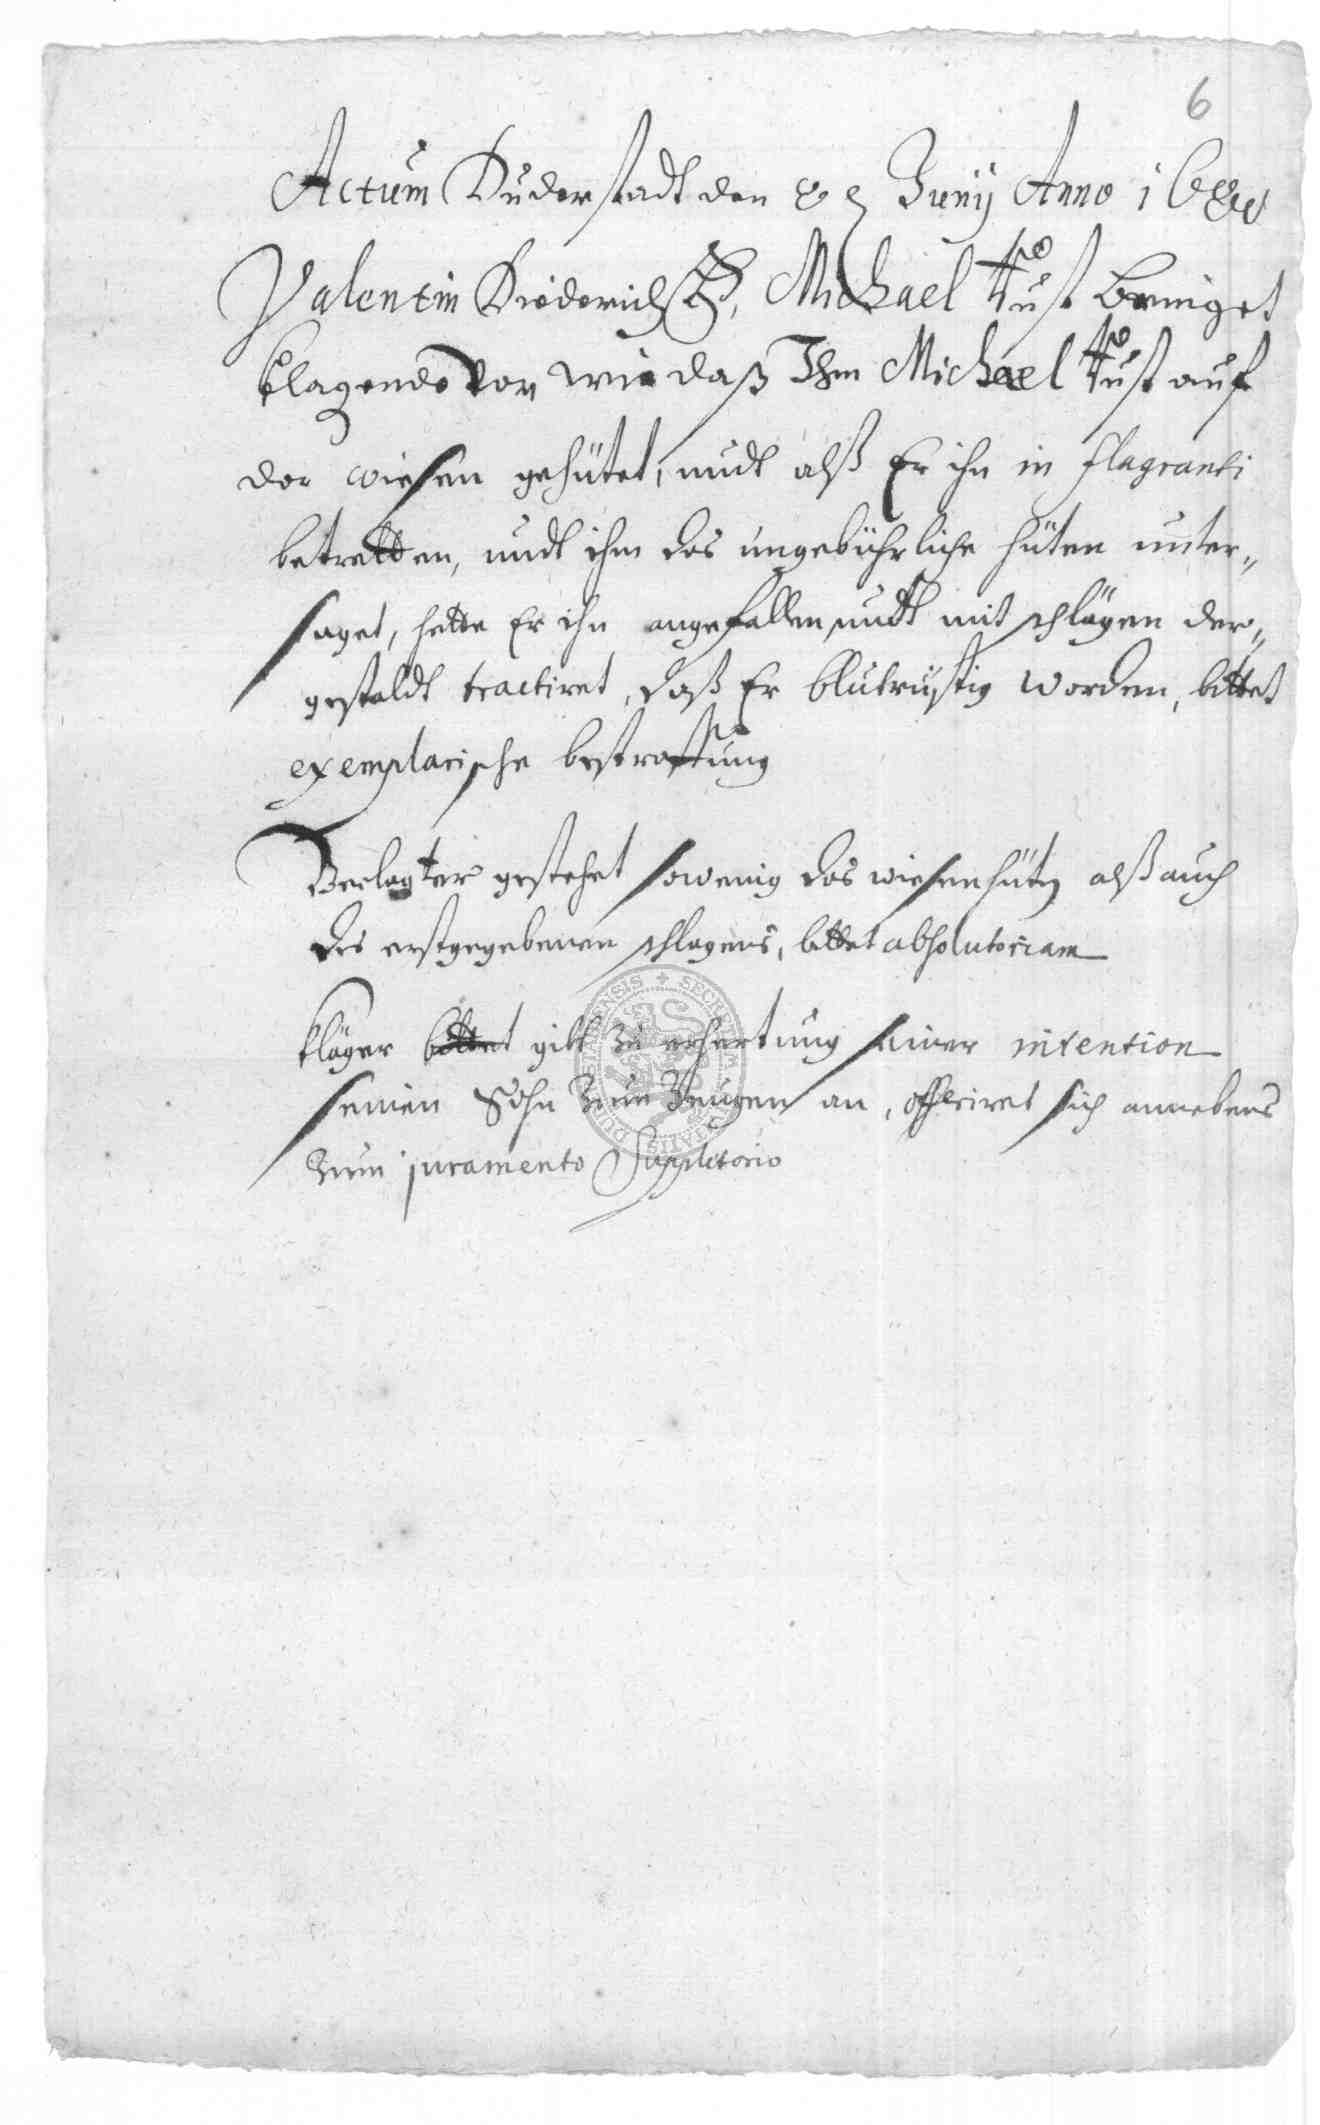 6
Actum Duderstadt den Junij Anno
Valentin Diederich Michael Just bringet
klagende vor wie daß Ihm Michael Just auf
der wiesen gehütet, undt alß Er ihn in flagranti
betretten, undt ihm das ungebührliche hüten unter-
saget, hette Er ihn angefallen undt mit schlägen der-
gestaldt tractiret, daß Er blutrüstig worden, bittet
exemplarische bestraffung
Beclagter gestehet sowenig das wiesenhüten alß auch
des erstgegebenen schlagens, bittet absolutoriam
Kläger bittet gibt zu erhertung seiner intention
seinen Sohn zum Zeugen an, offeriret sich annebens
zum juramento Suppletorio